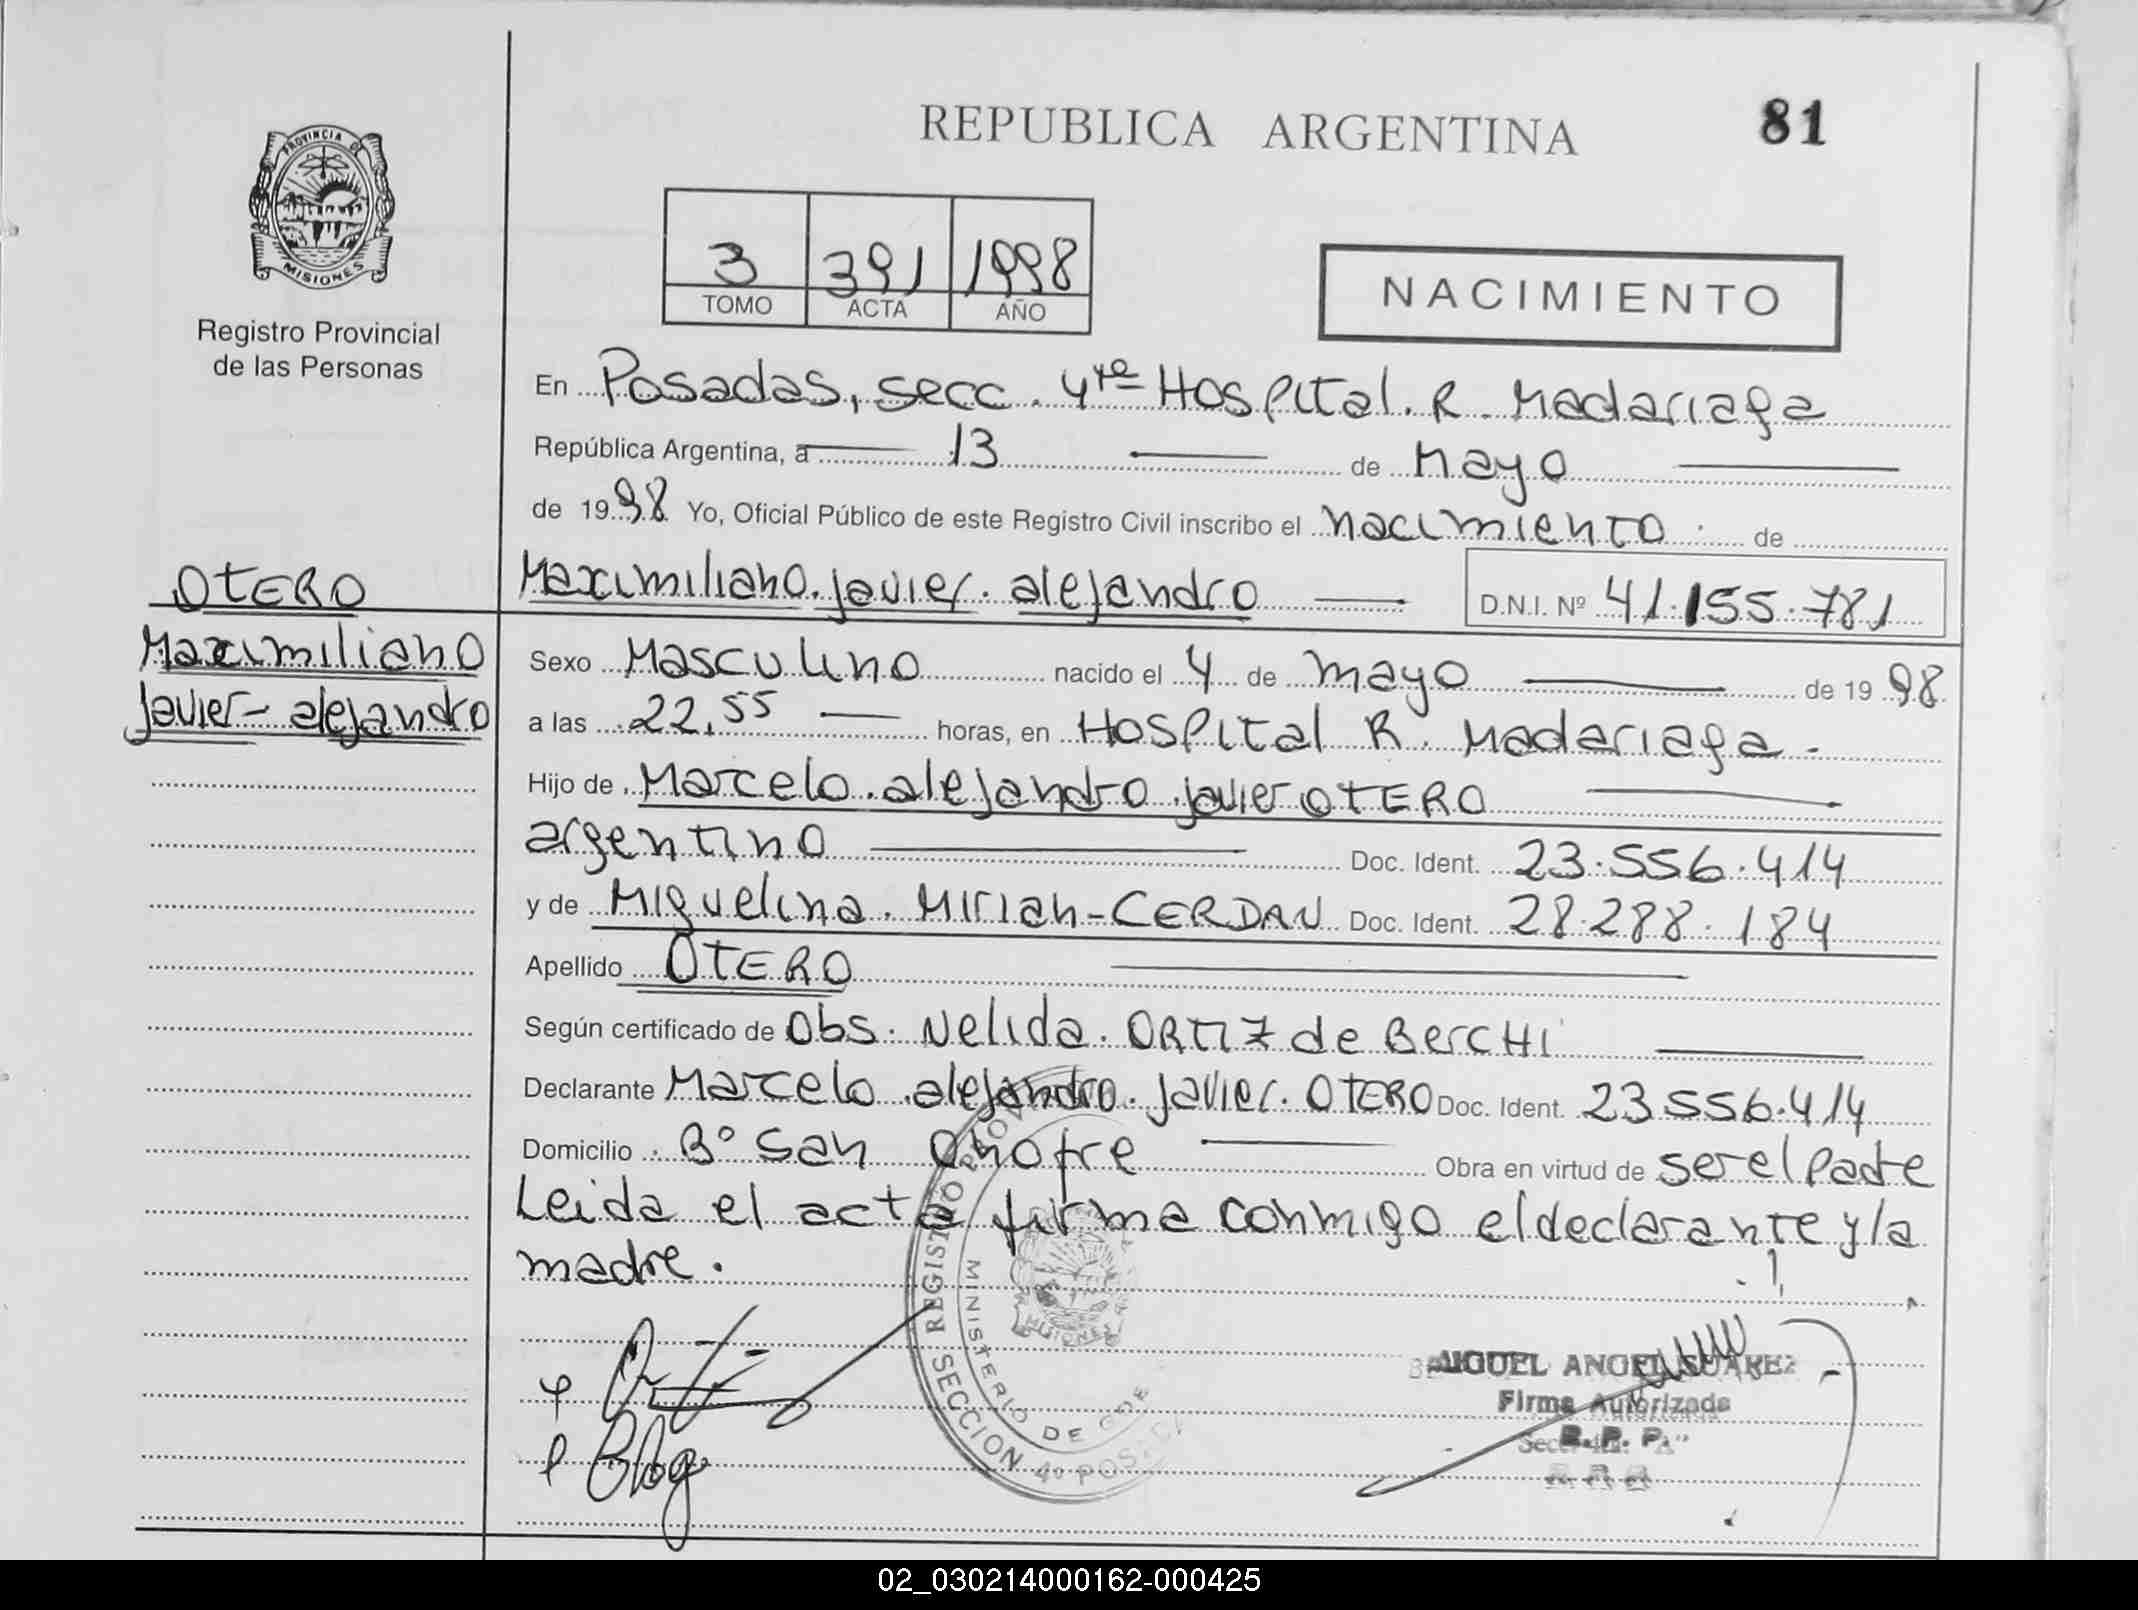 REPUBLICA ARGENTINA
81
PROVINCIA DE
MISIONES
Registro Provincial
de las Personas
3 391 1998
TOMO ACTA AÑO
NACIMIENTO
En Posadas, secc. 4ta Hospital. R. Madariaga
República Argentina, a 13 de Mayo
de 1998 Yo, Oficial Público de este Registro Civil inscribo el nacimiento de
OTERO
Maximiliano
Javier - alejandro
Maximiliano. Javier. alejandro D.N.I. Nº 41.155.781
Sexo Masculino nacido el 4 de mayo de 1998
a las 22,55 horas, en Hospital R. Madariaga.
Hijo de Marcelo. alejandro. javier OTERO
argentino Doc. Ident. 23.556.414
y de Miguelina. Mirian-CERDAN Doc. Ident. 28.288.184
Apellido OTERO
Según certificado de Obs. Nelida. ORTIZ de BercHi
Declarante Marcelo. alejandro. Javier. OTERO Doc. Ident. 23.556.414
Domicilio Bº San Onofre Obra en virtud de ser el Padre
Leida el acta firma conmigo el declarante y la
madre.
REGISTRO PROV
MINISTERIO DE GOB
MISIONES
SECCION 4º POSAD
MIGUEL ANGEL SUAREZ
Firma Autorizada
R. P. P.
02_030214000162-000425